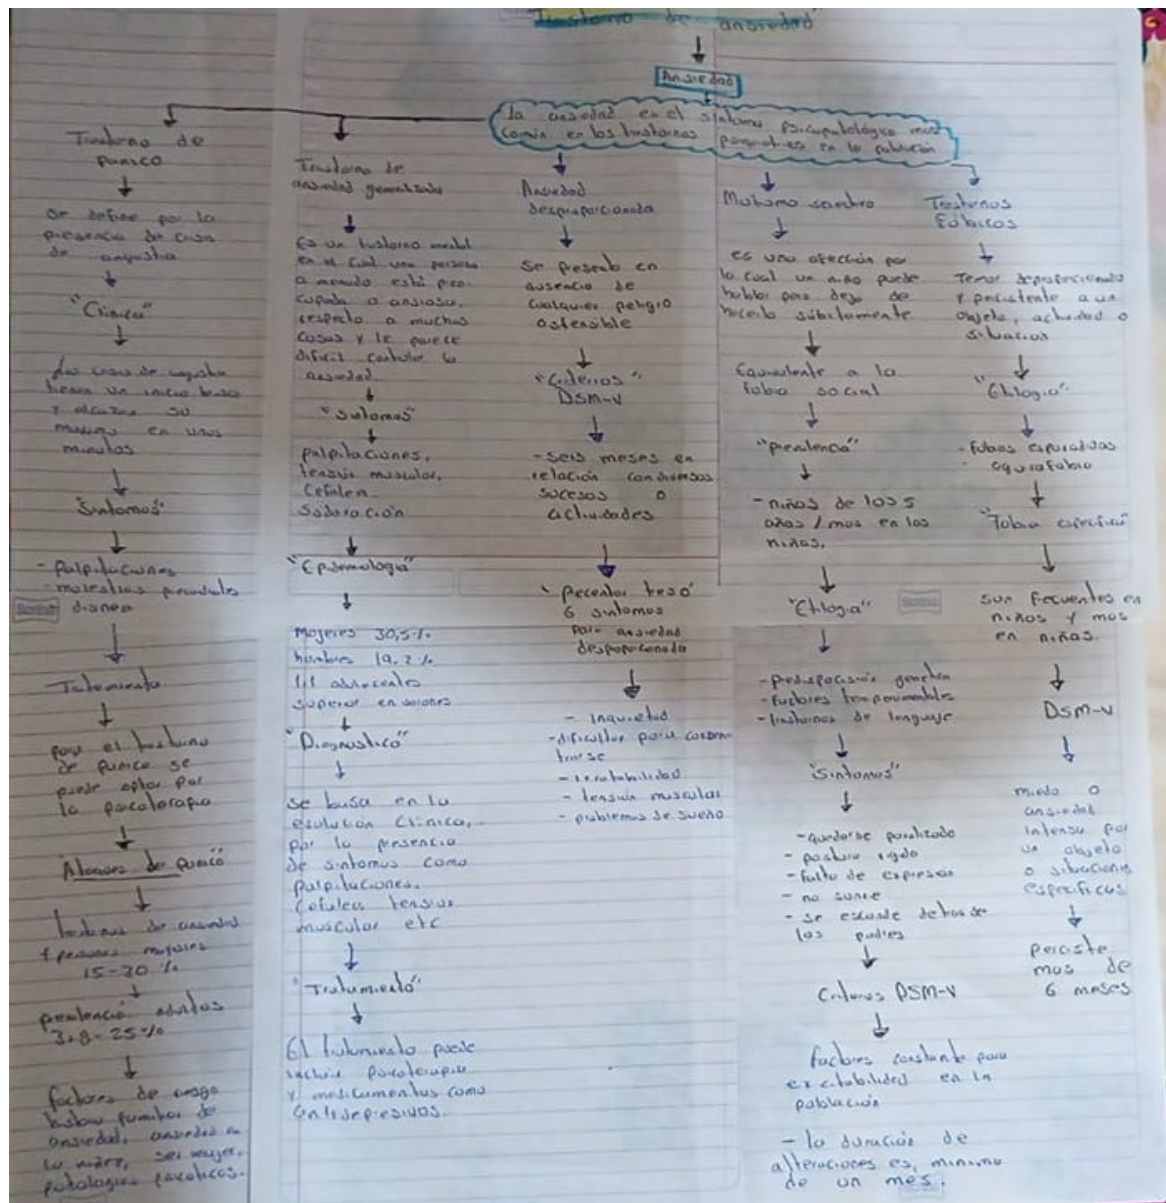 Trastorno de ansiedad"
Ansiedad
la ansiedad es el síntoma psicopatológico mas
común en los trastornos psiquiatricos en la población
Trastorno de
panico
se define por la
presencia de crisis
de angustia
"Clinica"
las crisis de angustia
tienen un inicio
y alcanza su
en unos
minutos
"Sintomas"
- Palpitaciones
- molestias precordiales
disnea
Tratamiento
para el trastorno
de panico se
puede optar por
la psicoterapia
Ataques de panico
trastornos de ansiedad
personas mayores
15-20 %
prevalencia adultos
3.8-25%
factores de riesgo
familiar de
ansiedad, ansiedad en
la niñez, ser mujer,
patologias
Trastorno de
ansiedad generalizada
Es un trastorno mental
en el cual una persona
a menudo está preo-
cupada o ansiosa,
respecto a muchas
cosas y le parece
dificil controlar la
ansiedad.
"Sintomas"
palpitaciones,
tensión muscular,
Cefalea.
Sodoración
"Epidemiologia"
Mujeres 30,5%
hombres 19.2%
superior en varones
"Diagnostico"
se basa en la
evolución Clinica,
por la presencia
de sintomas como
palpitaciones.
Cefalea tension
muscular etc
"Tratamiento"
El tratamiento puede
incluir psicoterapia
y medicamentos como
antidepresivos.
Ansiedad
desproporcionada
Se presenta en
ausencia de
cualquier peligro
ostensible
"Criterios"
DSM-V
- seis meses en
relación con diversos
sucesos o
actividades
6 sintomas
para ansiedad
desproporcionada
- Inquietud
- dificultad para concen-
trarse
- irratabilidad
- tensión muscular
- problemas de sueño
Mutismo selectivo
es una afección por
lo cual un niño puede
hablar pero deja de
hacerlo súbitamente
Equivalente a la
fobia social
"Prevalencia"
- niños de los 5
años / mas en las
niñas.
"Etilogia"
- predisposición genetica
- factores temperamentales
- trastornos de lenguaje
"Sintomas"
- quedarse paralizado
- postura rigida
- falta de expresión
- no sonrie
- se esconde detras de
los padres
Criterios DSM-V
factores constante para
excitabilidad en la
población
- la duración de
alteraciones es, minimo
de un mes.
Trastornos
Fobicos
Temor desproporcionado
y persistente a un
objeto, actividad o
situación
"Etilogia"
- fobias
agorafobia
"Fobia especifica"
Son frecuentes en
niños y mas
en niñas.
DSM-V
miedo o
ansiedad
intensa por
un objeto
o situaciones
especificas
persiste
mas de
6 meses